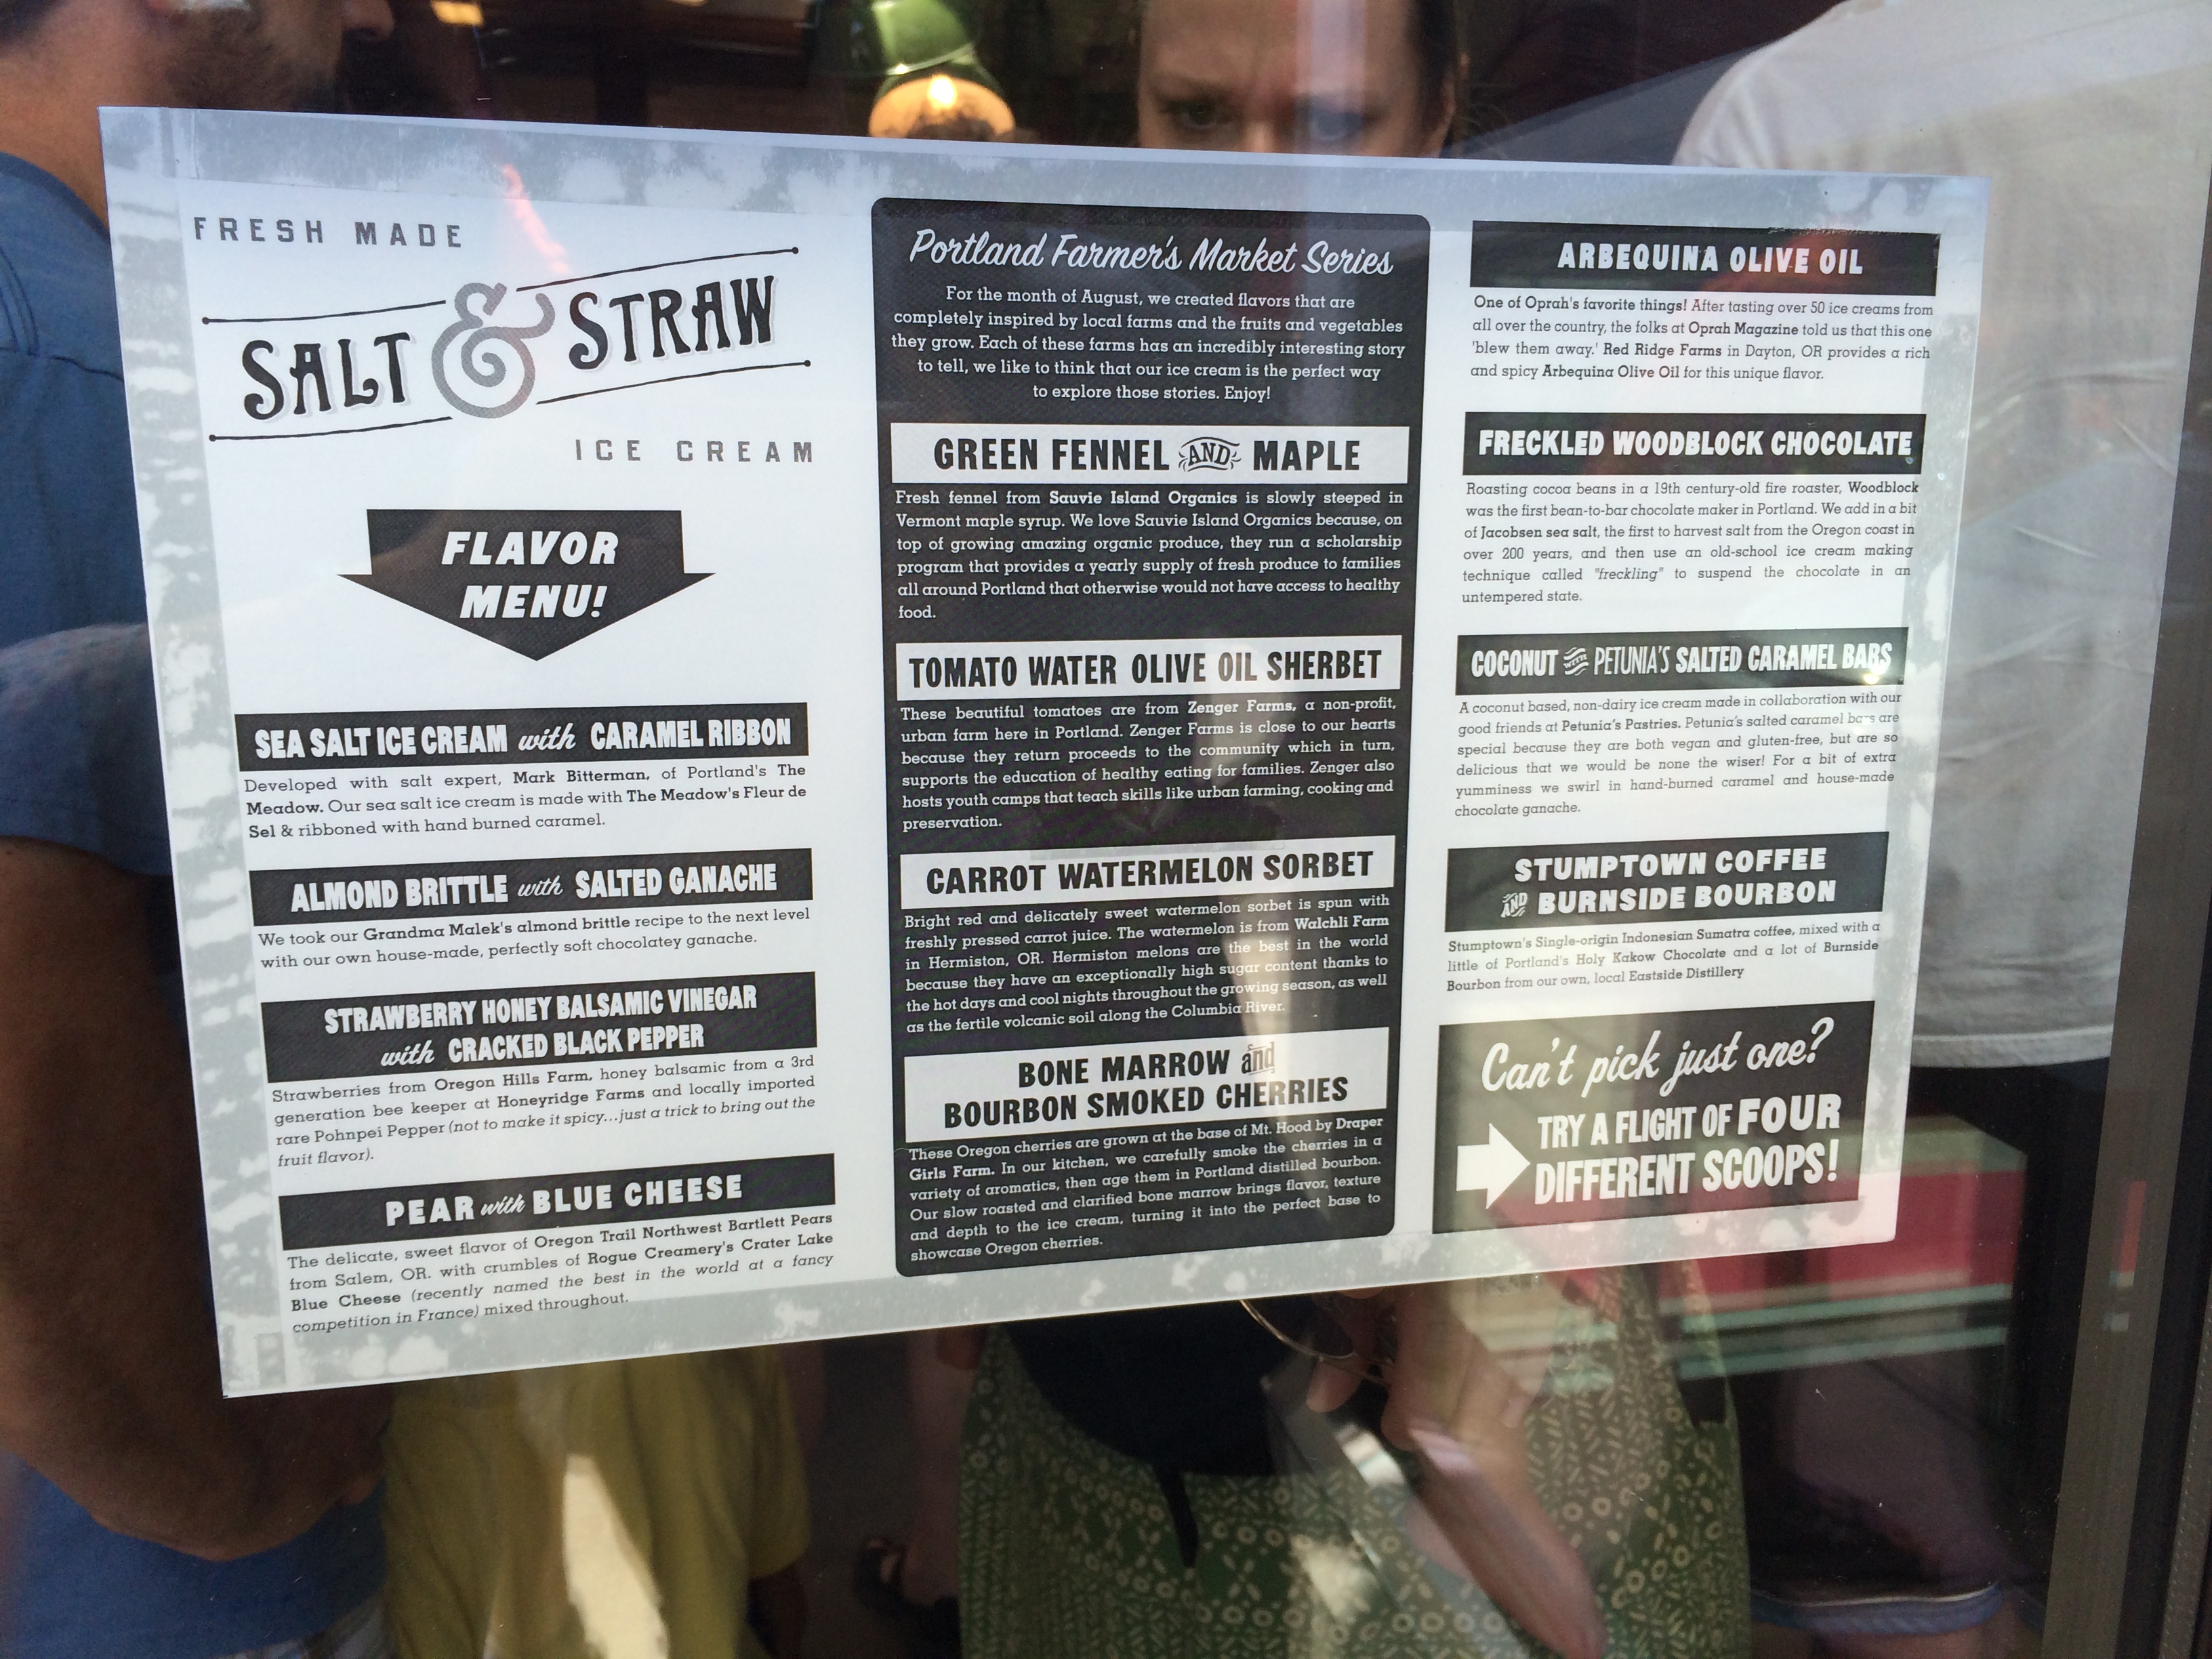 FRESH MADE
SALT & STRAW
ICE CREAM
FLAVOR
MENU!
SEA SALT ICE CREAM with CARAMEL RIBBON
Developed with salt expert, Mark Bitterman, of Portland's The
Meadow. Our sea salt ice cream is made with The Meadow's Fleur de
Sel & ribboned with hand burned caramel.
ALMOND BRITTLE with SALTED GANACHE
We took our Grandma Malek's almond brittle recipe to the next level
with our own house-made, perfectly soft chocolatey ganache.
STRAWBERRY HONEY BALSAMIC VINEGAR
with CRACKED BLACK PEPPER
Strawberries from Oregon Hills Farm, honey balsamic from a 3rd
generation bee keeper at Honeyridge Farms and locally imported
rare Pohnpei Pepper (not to make it spicy...just a trick to bring out the
fruit flavor).
PEAR with BLUE CHEESE
The delicate, sweet flavor of Oregon Trail Northwest Bartlett Pears
from Salem, OR. with crumbles of Rogue Creamery's Crater Lake
Blue Cheese (recently named the best in the world at a fancy
competition in France) mixed throughout.
Portland Farmer's Market Series
For the month of August, we created flavors that are
completely inspired by local farms and the fruits and vegetables
they grow. Each of these farms has an incredibly interesting story
to tell, we like to think that our ice cream is the perfect way
to explore those stories. Enjoy!
GREEN FENNEL AND MAPLE
Fresh fennel from Sauvie Island Organics is slowly steeped in
Vermont maple syrup. We love Sauvie Island Organics because, on
top of growing amazing organic produce, they run a scholarship
program that provides a yearly supply of fresh produce to families
all around Portland that otherwise would not have access to healthy
food.
TOMATO WATER OLIVE OIL SHERBET
These beautiful tomatoes are from Zenger Farms, a non-profit,
urban farm here in Portland. Zenger Farms is close to our hearts
because they return proceeds to the community which in turn,
supports the education of healthy eating for families. Zenger also
hosts youth camps that teach skills like urban farming, cooking and
preservation.
CARROT WATERMELON SORBET
Bright red and delicately sweet watermelon sorbet is spun with
freshly pressed carrot juice. The watermelon is from Walchli Farm
in Hermiston, OR. Hermiston melons are the best in the world
because they have an exceptionally high sugar content thanks to
the hot days and cool nights throughout the growing season, as well
as the fertile volcanic soil along the Columbia River.
BONE MARROW and
BOURBON SMOKED CHERRIES
These Oregon cherries are grown at the base of Mt. Hood by Draper
Girls Farm. In our kitchen, we carefully smoke the cherries in a
variety of aromatics, then age them in Portland distilled bourbon.
Our slow roasted and clarified bone marrow brings flavor, texture
and depth to the ice cream, turning it into the perfect base to
showcase Oregon cherries.
ARBEQUINA OLIVE OIL
One of Oprah's favorite things! After tasting over 50 ice creams from
all over the country, the folks at Oprah Magazine told us that this one
'blew them away.' Red Ridge Farms in Dayton, OR provides a rich
and spicy Arbequina Olive Oil for this unique flavor.
FRECKLED WOODBLOCK CHOCOLATE
Roasting cocoa beans in a 19th century-old fire roaster, Woodblock
was the first bean-to-bar chocolate maker in Portland. We add in a bit
of Jacobsen sea salt, the first to harvest salt from the Oregon coast in
over 200 years, and then use an old-school ice cream making
technique called "freckling" to suspend the chocolate in an
untempered state.
COCONUT WITH PETUNIA'S SALTED CARAMEL BARS
A coconut based, non-dairy ice cream made in collaboration with our
good friends at Petunia's Pastries. Petunia's salted caramel bars are
special because they are both vegan and gluten-free, but are so
delicious that we would be none the wiser! For a bit of extra
yumminess we swirl in hand-burned caramel and house-made
chocolate ganache.
STUMPTOWN COFFEE
AND BURNSIDE BOURBON
Stumptown's Single-origin Indonesian Sumatra coffee, mixed with a
little of Portland's Holy Kakow Chocolate and a lot of Burnside
Bourbon from our own, local Eastside Distillery
Can't pick just one?
TRY A FLIGHT OF FOUR
DIFFERENT SCOOPS!